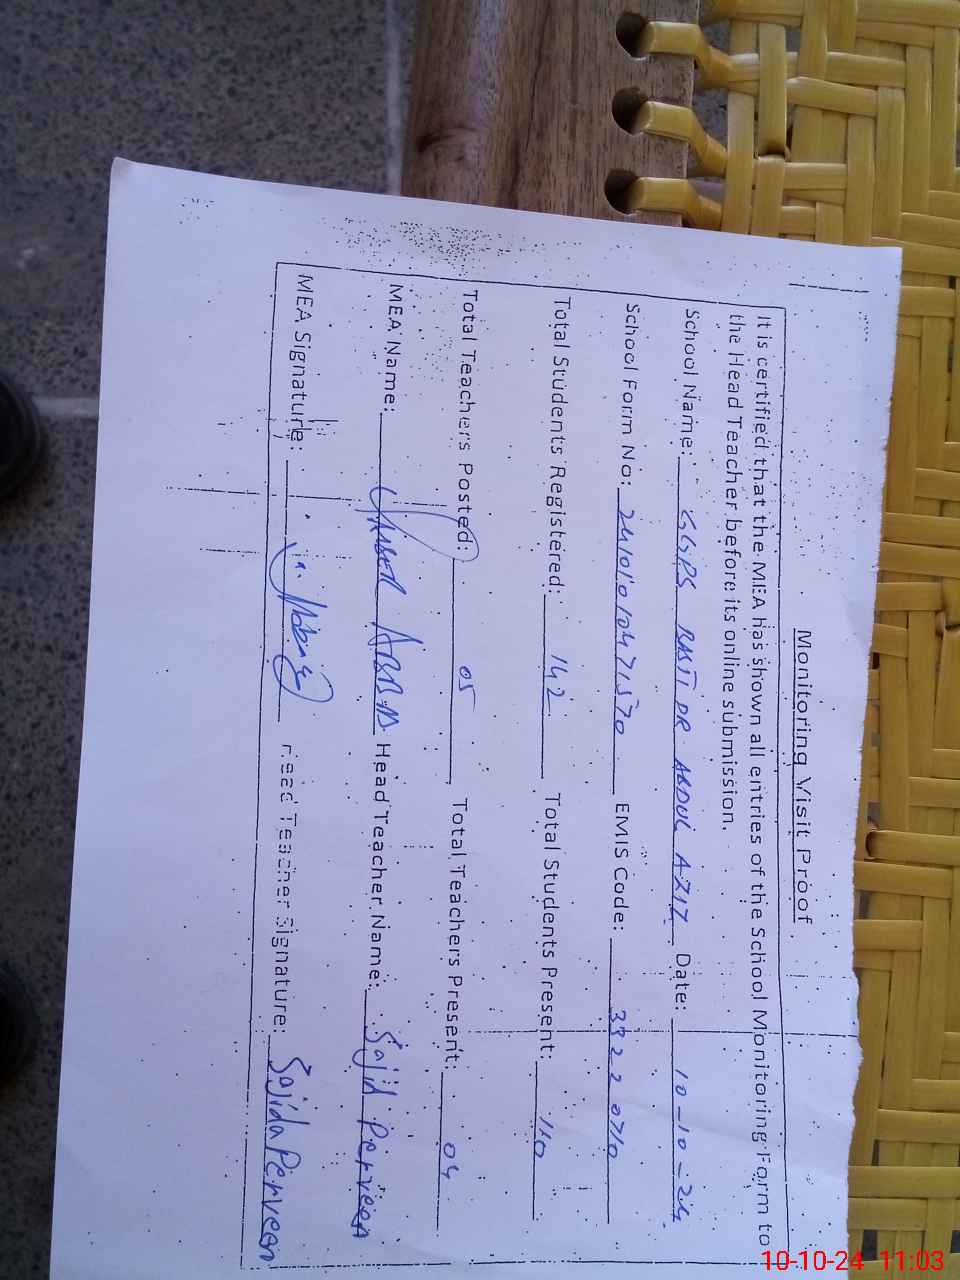 Monitoring Visit Proof
It is certified that the MEA has shown all entries of the School Monitoring Form to
the Head Teacher before its online submission.
School Name: GGPS BASTI DR ABDUL AZIZ Date: 10-10-24
School Form No: EMIS Code: 33220710
Total Students Registered: 142 Total Students Present: 110
Total Teachers Posted: 05 Total Teachers Present: 04
MEA Name: Head Teacher Name: Sajid Perveen
MEA Signature: Head Teacher Signature: Sajida Perveen
10-10-24 11:03